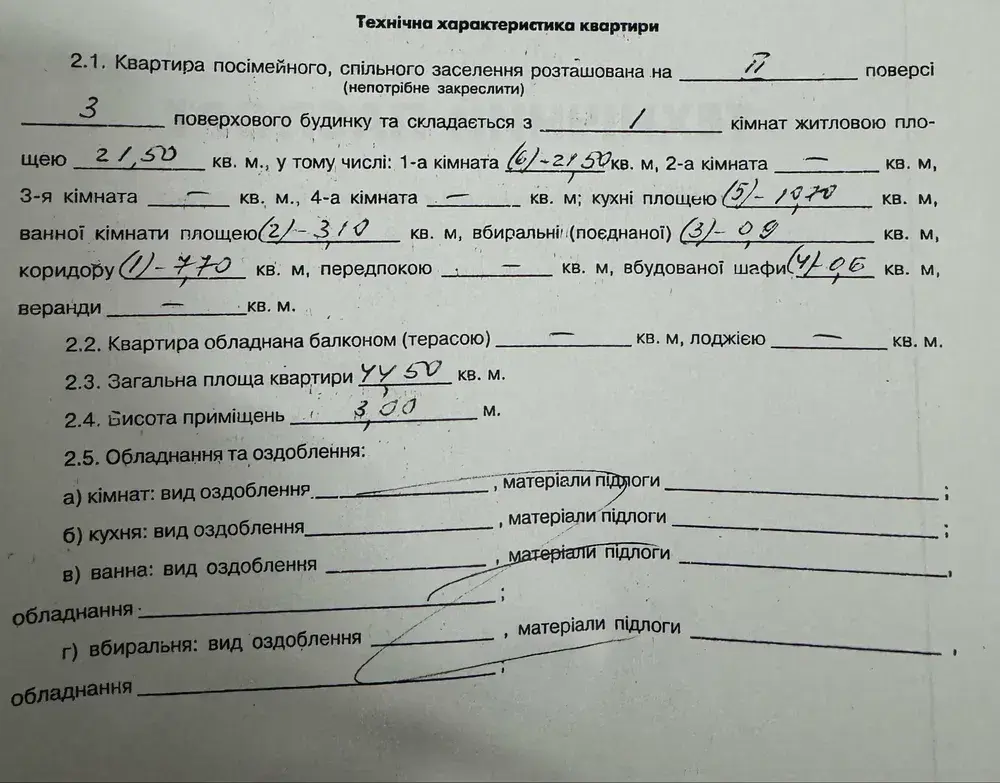 Технічна характеристика квартири
2.1. Квартира посімейного, спільного заселення розташована на II поверсі
(непотрібне закреслити)
3 поверхового будинку та складається з 1 кімнат житловою пло-
щею 21,50 кв. м., у тому числі: 1-а кімната (6)-21,50 кв. м, 2-а кімната — кв. м,
3-я кімната — кв. м., 4-а кімната — кв. м; кухні площею (5)-10,70 кв. м,
ванної кімнати площею (2)-3,10 кв. м, вбиральні (поєднаної) (3)-0,9 кв. м,
коридору (1)-7,70 кв. м, передпокою — кв. м, вбудованої шафи (4)-0,6 кв. м,
веранди — кв. м.
2.2. Квартира обладнана балконом (терасою) — кв. м, лоджією — кв. м.
2.3. Загальна площа квартири 44,50 кв. м.
2.4. Висота приміщень 3,00 м.
2.5. Обладнання та оздоблення:
а) кімнат: вид оздоблення , матеріали підлоги ;
б) кухня: вид оздоблення , матеріали підлоги ;
в) ванна: вид оздоблення , матеріали підлоги ,
обладнання ;
г) вбиральня: вид оздоблення , матеріали підлоги ,
обладнання ;